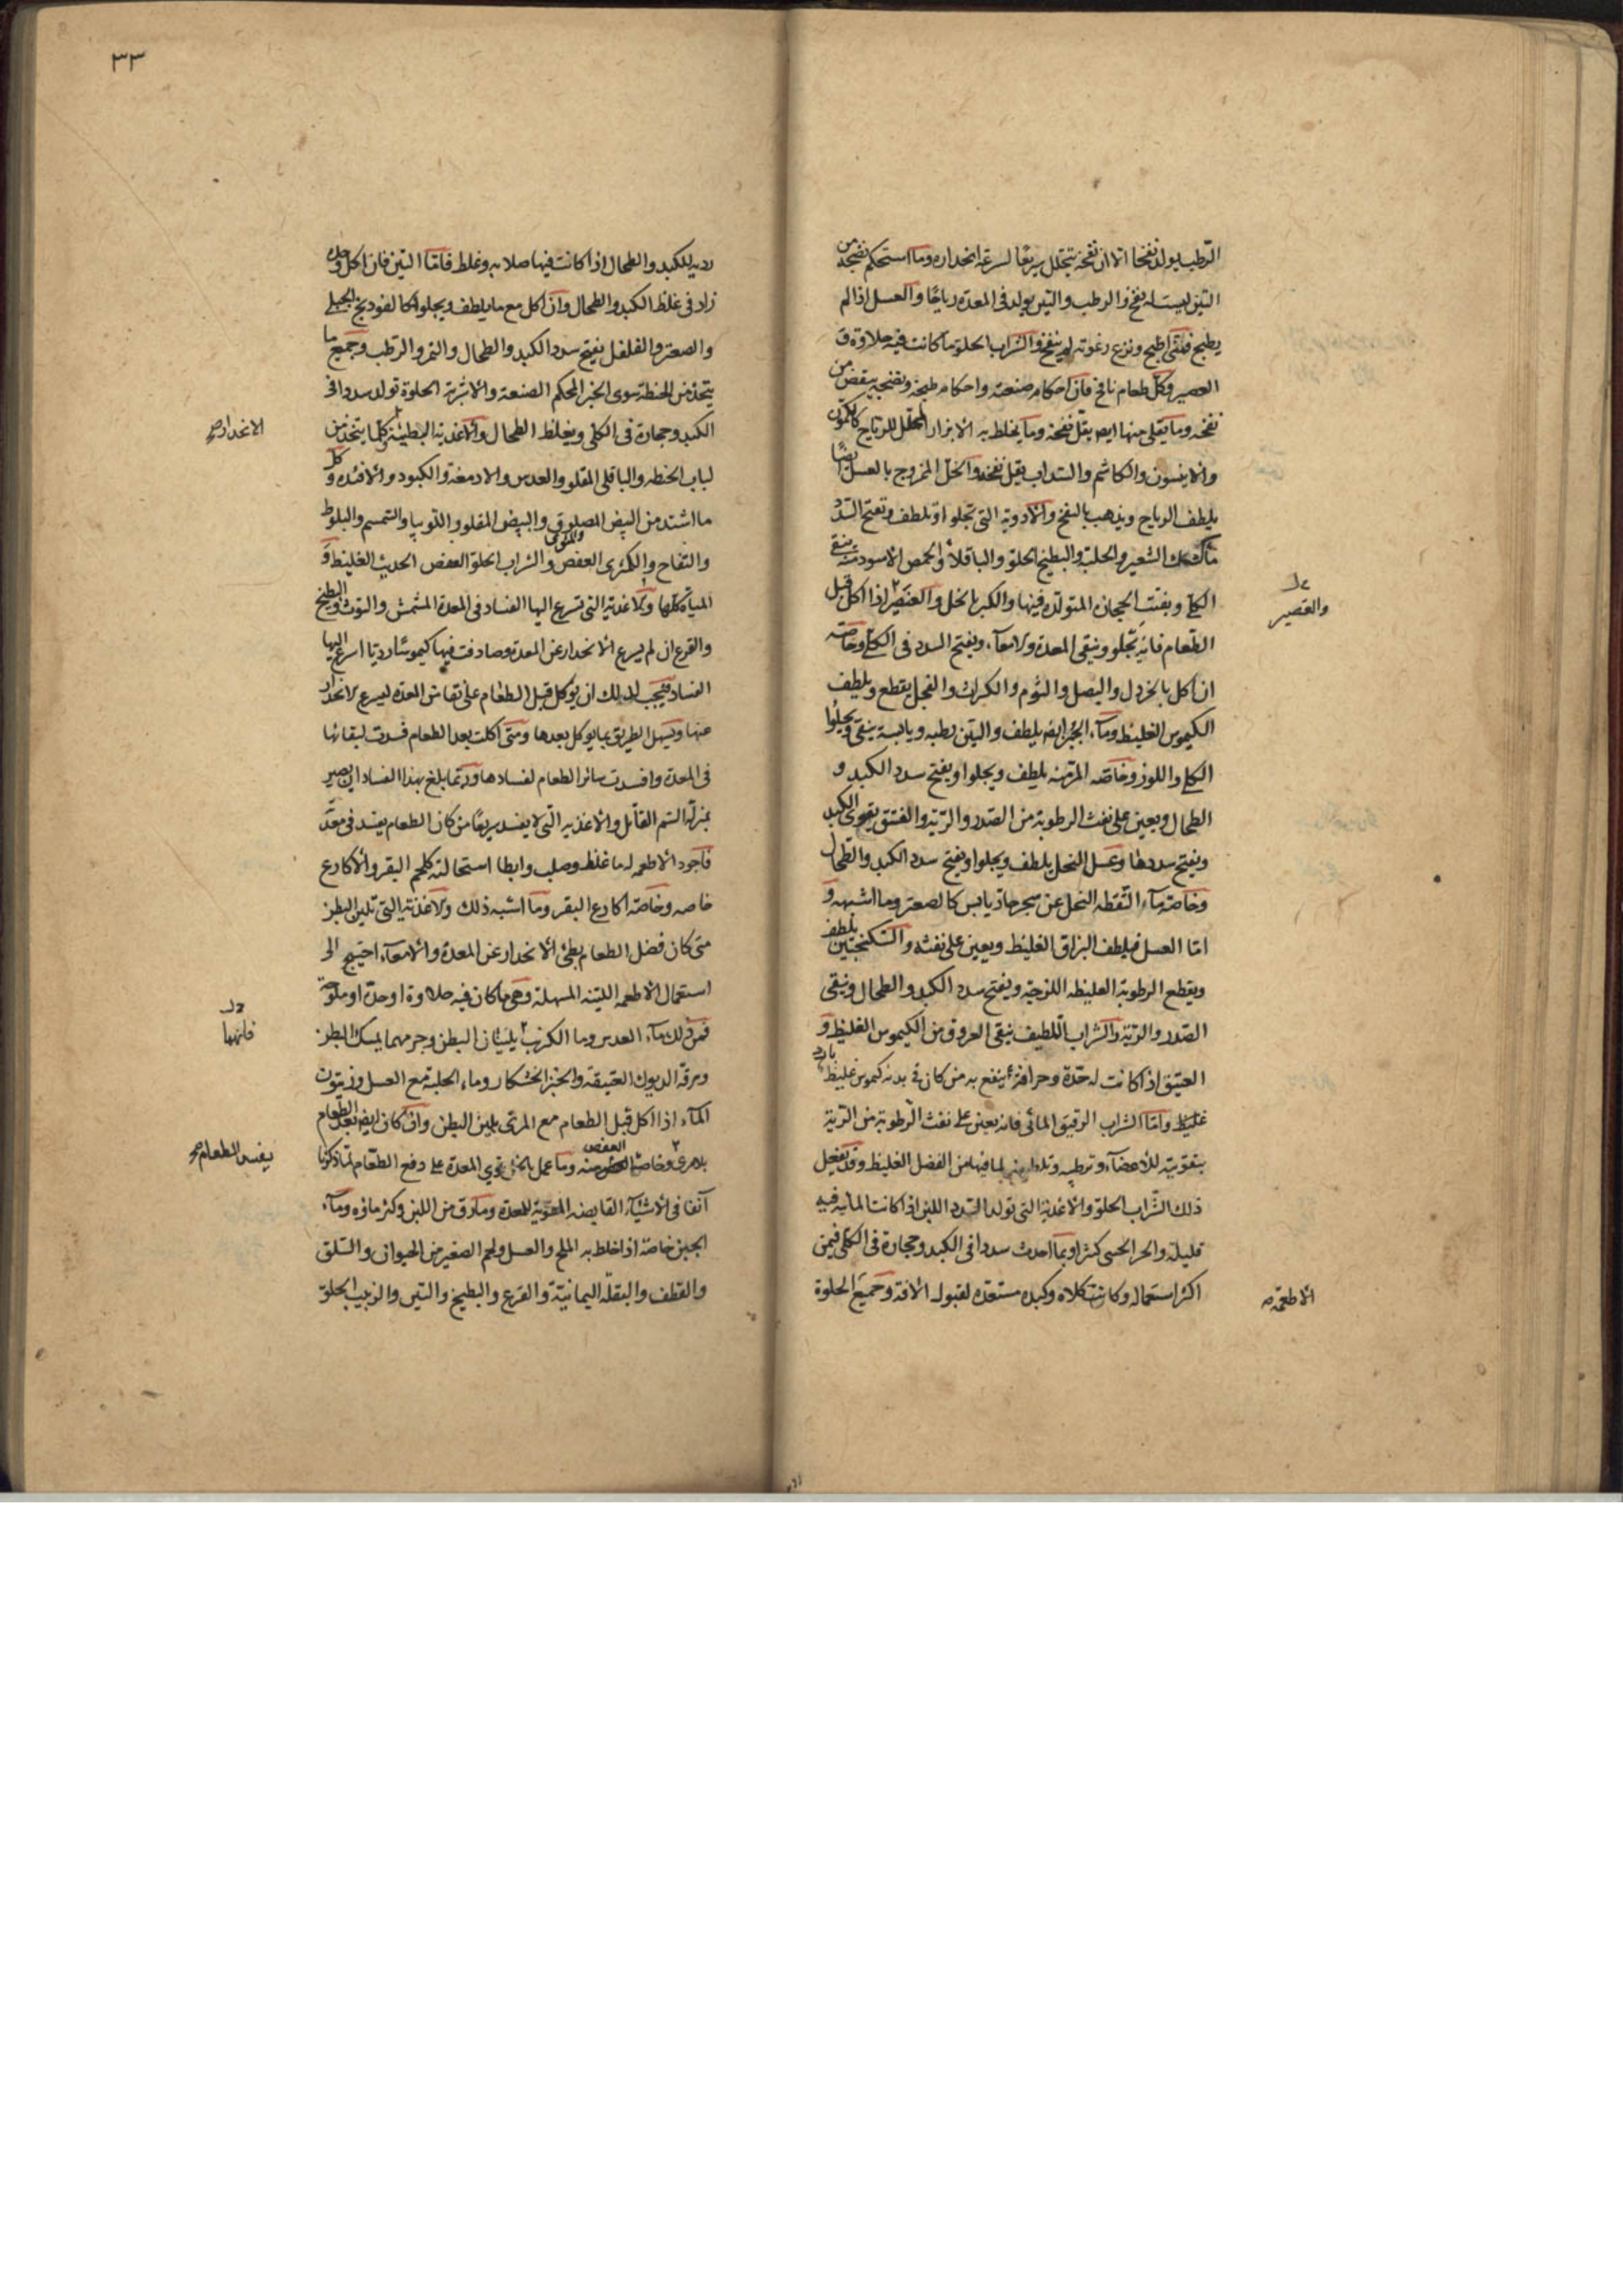 الرطب يولد نفخا الا ان نفخه يتحلل سريعًا لسرعة انحداره وما استحكم نضجه من
التين ليست له نفخ والرطب والتين يولد فى المعدة رياحًا والعسل اذا لم
يطبخ فمتى طبخ ونزع رغوته لم ينفخ والشراب الحلو ما كانت فيه حلاوة ق
العصير وكل طعام نافخ فان احكام صنعته واحكام طبخه ونضجه ينقص من
نفخه وما يقلى منها ايضا يقل نفخه وما يخلط به الابزار المحلل للرياح كالكمون
والانيسون والكاشم والسداب يقل نفخه والخل الممزوج بالعسل ايضًا
يلطف الرياح ويذهب بالنفخ والادوية التى تجلو او تلطف وتفتح السدد
ماء كشك الشعير والحلبة والبطيخ الحلو والباقلا والحمص الاسود ينقى
الكلى ويفتت الحجارة المتولدة فيها والكبر بالخل والعنصر اذا اكل قبل
الطعام فانه تجلو وينقى المعدة والامعاء ويفتح السدد فى الكلى وخاصه
ان اكل بالخردل والبصل والثوم والكراث والفجل يقطع ويلطف
الكيموس الغليظ وماء الجبن ايضا يلطف والتين رطبه ويابسه ينقى ويجلوا
الكلى واللوز وخاصه المر منه يلطف ويجلوا ويفتح سدد الكبد و
الطحال ويعين على نفث الرطوبة من الصدر والرية والفستق يقوى الكبد
ويفتح سددها وعسل النحل يلطف ويجلوا ويفتح سدد الكبد والطحال
وخاصة ماء التقطه النحل عن شجر حاد يابس كالصعتر وما اشبهه و
اما العسل فيلطف البزاق الغليظ ويعين على نفثه والسكنجبين يلطف
ويقطع الرطوبة الغليظه اللزجة ويفتح سدد الكبد والطحال وينقى
الصدر والرية والشراب اللطيف ينقى العروق من الكيموس الغليظ و
العتيق اذا كانت له حدة وحرافة ينفع به من كان فى بدنه كيموس غليظ بارد
غليظ واما الشراب الرقيق المائى فانه يعين على نفث الرطوبة من الرية
بتقويته للاعضاء وترطيبه وتلطيفه لما فيها من الفضل الغليظ وقد يفعل
ذلك الشراب الحلو والاغذية التى تولد السدد اللبن اذا كانت المائية فيه
قليلة والجبن الحسى كثيرا وبما احدث سددا فى الكبد وحجارة فى الكلى فيمن
اكثر استعماله وكانت كلاه وكبده مستعده لقبول الافة وجميع الحلوة
والعصير
الاطعمة
٣٣
رديه للكبد والطحال اذا كانت فيها صلابه وغلظ فاما التين فان اكل وحده
زاد فى غلظ الكبد والطحال وان اكل مع ما يلطف ويجلوا كالفودنج الجبلى
والصعتر والفلفل يفتح سدد الكبد والطحال والتمر والرطب وجميع ما
يتخذ من الحنطة سوى الخبز المحكم الصنعة والاشربة الحلوة تولد سددا فى
الكبد وحجارة فى الكلى ويغلظ الطحال والاغذية البطيئة كلما يتخذ من
لباب الحنطه والباقلى المقلو والعدس والادمغة والكبود والافئده وكل
ما اشتد من البيض المصلوق والبيض المقلو واللوبيا والسمسم والبلوط
والتفاح والكمثرى العفص والشراب الحلو العفص الحديث الغليظ و
المياه كلها والاغذية التى تسرع اليها الفساد فى المعدة المشمش والتوث والبطيخ
والقرع ان لم يسرع الانحدار عن المعدة وصادفت فيها كيموسًا رديا اسرع اليها
الفساد فيجب لذلك ان يوكل قبل الطعام على نقا من المعده ليسرع الانحدار
عنها ويسهل الطريق بما يوكل بعدها ومتى اكلت بعد الطعام فسدت لبقائها
فى المعدة وافسدت سائر الطعام لفسادها وربما بلغ بهذا الفساد ان يصير
بمنزلة السم القاتل والاغذيه التى لا يفسد سريعًا من كان الطعام يفسد فى معدته
فاجود الاطعمه له ما غلظ وصلب وابطا استحالته كلحم البقر والاكارع
خاصه وخاصة اكارع البقر وما اشبه ذلك والاغذية التى تلين البطن
متى كان فضل الطعام بطئ الانحدار عن المعدة والامعاء احتيج الى
استعمال الاطعمه اللينه المسهلة وهى ما كان فيه حلاوة او حدة او ملوحة
فمن ذلك ماء العدس وما الكرنب يلينان البطن وجرمهما يمسك البطن
ومرقة الديوك العتيقه والخبز الخشكار وماء الحلبة مع العسل وزيتون
الماء اذا اكل قبل الطعام مع المرى يلين البطن وان كان ايضا بعد الطعام
بلامرى وخاصة العفص منه وما عمل بالخل يقوي المعدة على دفع الطعام لما ذكرنا
آنفا فى الاشياء القابضه المقوية للمعدة وما رق من اللبن وكثر ماؤه وماء
الجبن خاصة اذا خلط به الملح والعسل ولحم الصغير من الحيوان والسلق
والقطف والبقلة اليمانية والقرع والبطيخ والتين والزبيب الحلو
الانحدار
فانهما
يفسد الطعام